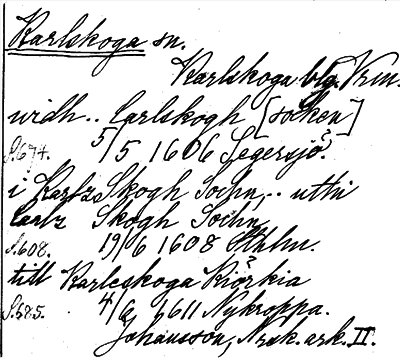 Karlskoga sn.
Karlskoga blg. Vrm.
widh.. Carlskogh [soken]
S. 674. 5/5 1606 Segersjö?
i Karlz Skogh Sochn,.. uthi
Carlz Skogh Sochn
S. 608. 19/6 1608 Sthlm.
till Karlsskoga Kiörkia
S. 585. 4/6 1611 Nykroppa.
Johansson, Nrsk. ark. II.